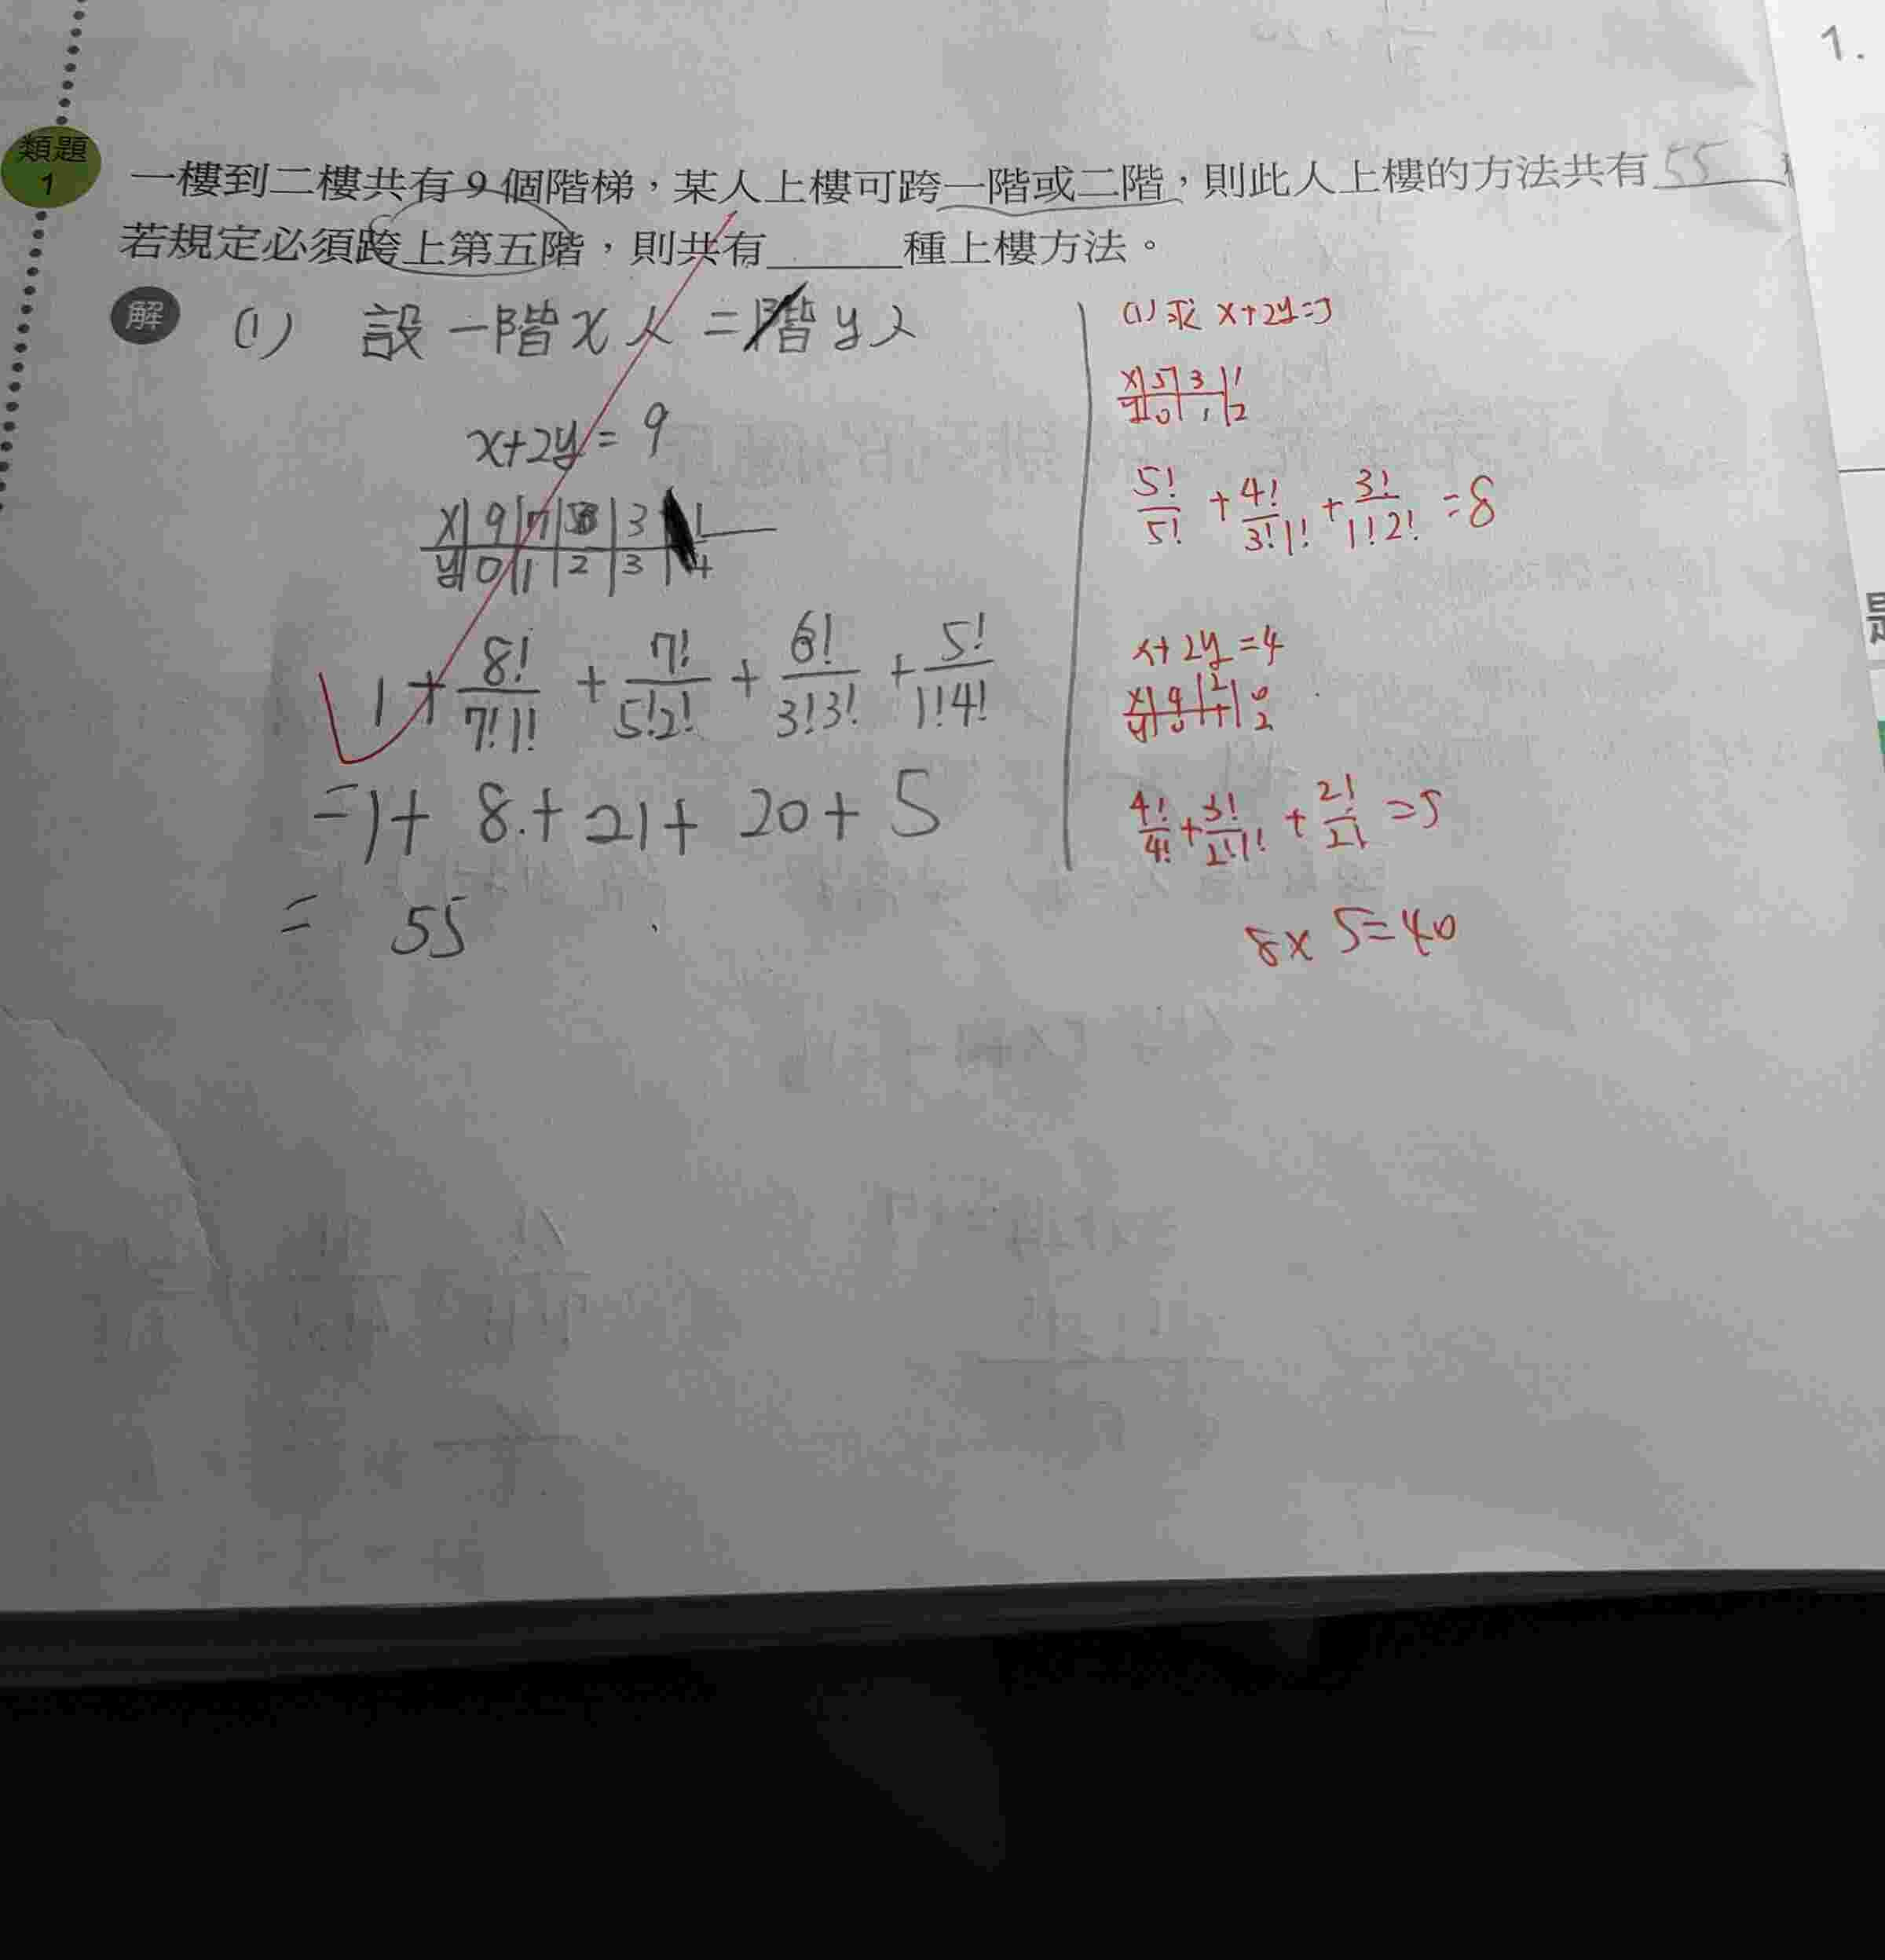 1.
類題
1
一樓到二樓共有9個階梯，某人上樓可跨一階或二階，則此人上樓的方法共有 55
若規定必須跨上第五階，則共有______種上樓方法。
解
(1) 設一階x 二階y
x+2y=9
x 9 7 5 3 1
y 0 1 2 3 4
1+8!/7!1!+7!/5!2!+6!/3!3!+5!/1!4!
=1+8+21+20+5
= 55
(1)求 x+2y=5
x 5 3 1
y 0 1 2
5!/5!+4!/3!1!+3!/1!2!=8
x+2y=4
x 4 2 0
y 0 1 2
4!/4!+3!/2!1!+2!/2!=5
8x5=40